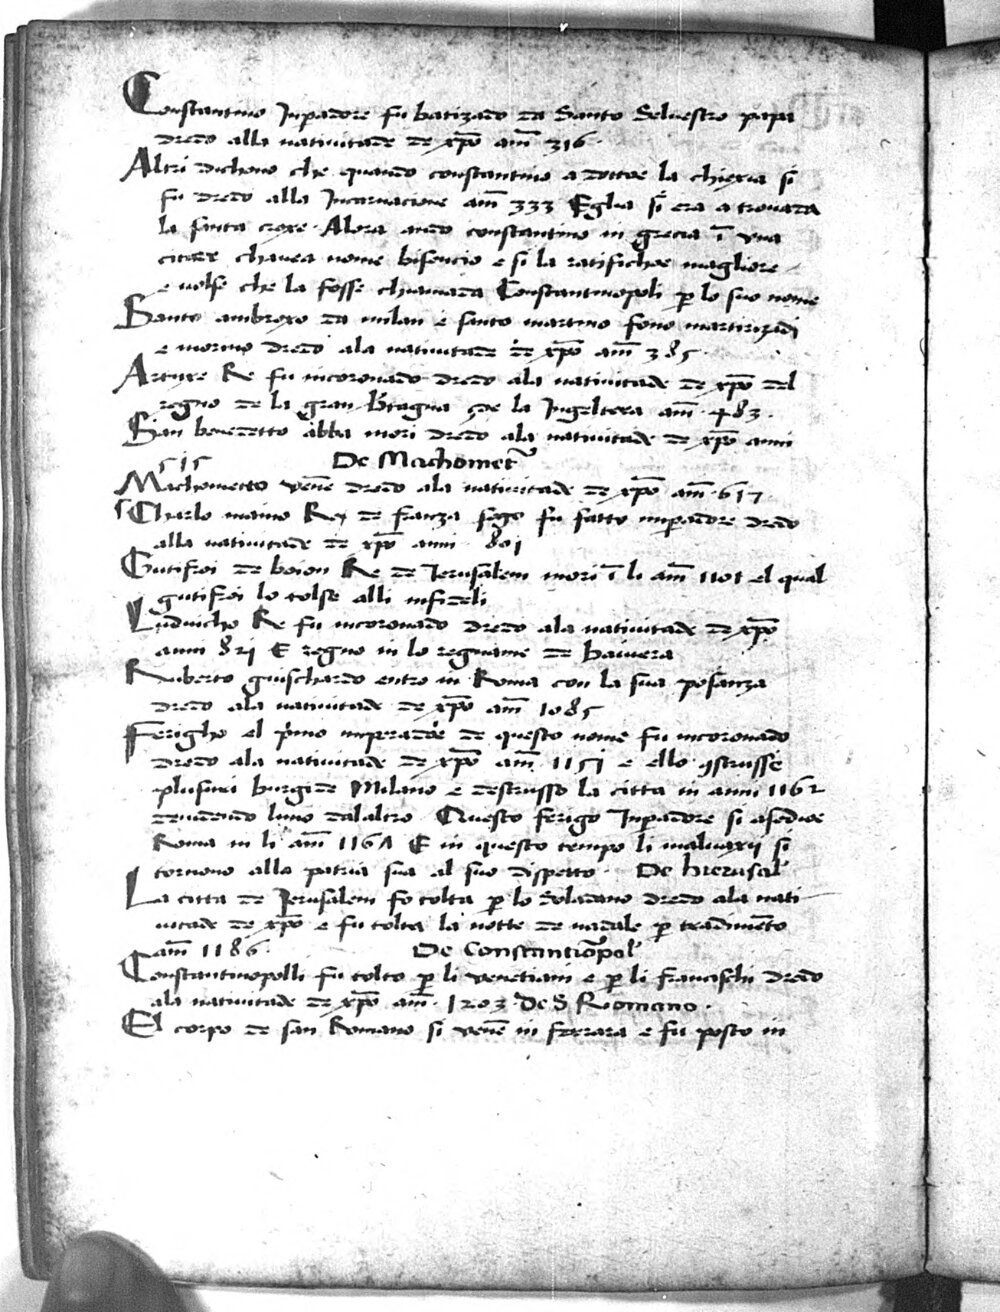 Constantino Inpadore fu batizado da Santo Seluestro papa
dredo alla natiuitade de xpo ani 316
Altri dichono che quando constantino adottoe la chiexia si
fu dredo alla Incarnacione ani 333 Eglia si era atrouada
la santa croxe. Alora ando constantino in grecia i una
citade chauea nome bisencio e si la ratifichoe magliore
e uolse che la fosse chiamada Constantinopoli p lo suo nome
Santo ambroxo da milan e santo martino fono martirizadi
e morino dredo ala natiuitade de xpo ani 385.
Arture Re fu incoronado dredo ala natiuitade de xpo del
regno de la gran bertagna de la Ingeltera ani 483.
San benedetto abba mori dredo ala natiuitade de xpo anni
515 De Machomet
Machometto vene dredo ala natiuitade de xpo ani 617
Charlo maino Rex de franza fu fatto inpadore dredo
alla natiuitade de xpo anni 801
Gutifroi de boion Re de Jerusalem mori i li ani 1101 el qual
gutifroi lo tolse alli infideli
Luduicho Re fu incoronado dredo ala natiuitade de xpo
anni 821 E regno in lo regname de baiuera
Ruberto guischardo entro in Roma con la sua posanza
dredo ala natiuitade de xpo ani 1085
Ferigho el pimo imperadore de questo nome fu incoronado
dredo ala natiuitade de xpo ani 1151 e ello
plusuri burgi de Milano e destrusse la citta in anni 1162
deuidendo luno dalaltro. Questo ferigo Inpadore si asedioe
Roma in li ani 1167 E in questo tempo li si
tornono alla patria sua al suo dispetto. De hierusal
La citta de Jerusalem fo tolta p lo Soladano dredo ala nati
uitade de xpo e fu tolta la notte de nadale p tradimeto
ani 1186. De Constantiopol
Constantinopolli fu tolto p li venetiani e p li francischi dredo
ala natiuitade de xpo ani. 1203 De S Romano.
El corpo de san Romano si vene in ferrara e fu posto in